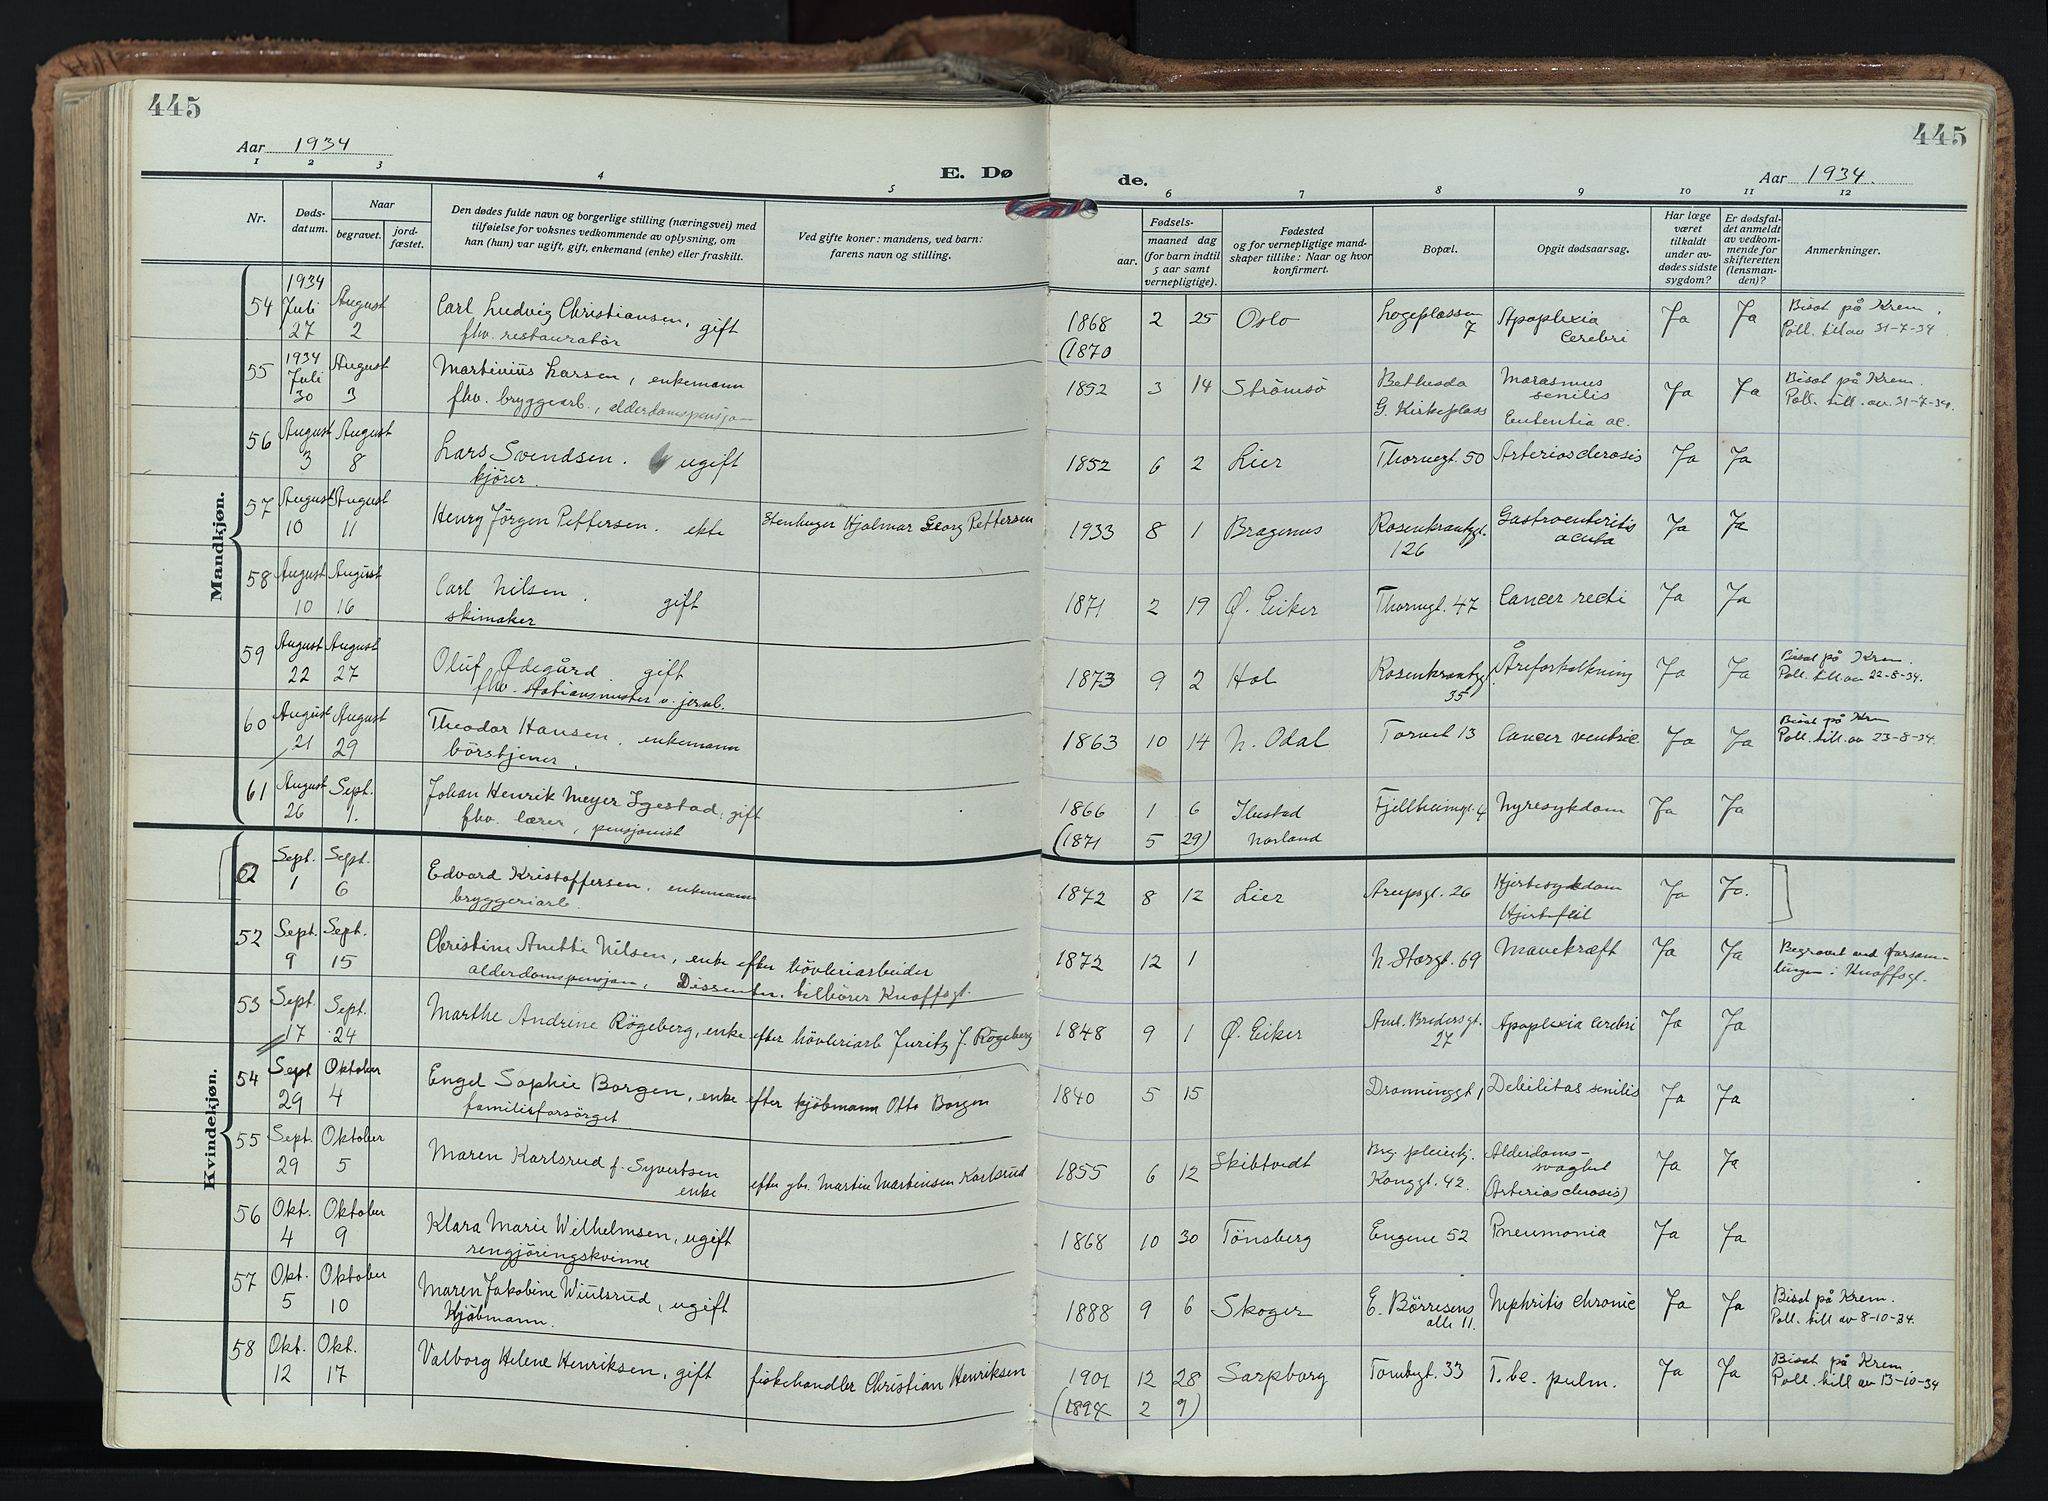 445
445
Aar 1934
E. Dø
de.
Aar 1934.
1 2 3 4 5 6 7 8 9 10 11 12
Nr.
Døds-
datum.
Naar
begravet.
jord-
fæstet.
Den dødes fulde navn og borgerlige stilling (næringsvei) med
tilføielse for voksnes vedkommende av oplysning, om
han (hun) var ugift, gift, enkemand (enke) eller fraskilt.
Ved gifte koner: mandens, ved barn:
farens navn og stilling.
Fødsels-
aar.
maaned dag
(for barn indtil
5 aar samt
vernepligtige).
Fødested
og for vernepligtige mand-
skaper tillike: Naar og hvor
konfirmert.
Bopæl.
Opgit dødsaarsag.
Har læge
været
tilkaldt
under av-
dødes sidste
sygdom?
Er dødsfal-
det anmeldt
av vedkom-
mende for
skifteretten
(lensman-
den)?
Anmerkninger.
Mandkjøn.
54 1934 Juli 27 August 2 Carl Ludvig Christiansen, gift 1868 2 25 Oslo Logeplassen 7 Apoplexia cerebri Ja Ja Bisat på Krem.
fhv. restauratør (1870 Poll. till av 31-7-34
55 1934 Juli 30 August 3 Martinius Larsen, enkemann 1852 3 14 Strömsö Bethesda Marasmus senilis Ja Ja Bisat på Krem.
fhv. bryggearb., alderdomspensjon G. Kirkeplass ac. Poll. till. av 31-7-34.
56 August 3 August 8 Lars Svendsen. ugift 1852 6 2 Lier Thornegt. 50 Arteriosclerosis Ja Ja
kjører.
57 August 10 August 11 Henry Jörgen Pettersen. ekte Stenhuger Hjalmar Georg Pettersen 1933 8 1 Bragernes Rosenkrantzgt. 126 Gastroenteritis acuta Ja Ja
58 August 10 August 16 Carl Nilsen. gift 1871 2 19 Ø. Eiker Thornegt. 47 Cancer recti Ja Ja
skimaker
59 August 22 August 27 Oluf Ødegård gift 1873 9 2 Hol Rosenkrantzgt. 35 Åreforkalkning Ja Ja Bisat på Krem.
fhv. stationsmester v. jernb. Poll. till av 22-8-34.
60 August 21 August 29 Theodor Hansen, enkemann 1863 10 14 N. Odal Torvet 13 Cancer ventric Ja Ja Bisat på Krem
börstjener. Poll. till. av 23-8-34.
61 August 26 Sept. 1. Johan Henrik Meyer Igestad, gift 1866 1 6 Ibestad Fjellheimgt. 4 Nyresykdom Ja Ja
fhv. lærer, pensjonist (1871 5 29) Norland
62 Sept. 1 Sept. 6 Edvard Kristoffersen, enkemann 1872 8 12 Lier Arupsgt. 26 Hjertesykdom Ja Ja.
bryggeriarb. Hjertefeil
Kvindekjøn.
52 Sept. 9 Sept. 15 Christine Anette Nilsen, enke efter hövleriarbeider 1872 12 1 N. Storgt. 69 Mavekræft Ja Ja Begravet ved Forsam-
alderdomspensjon, Dissenter, tilhörer Knoffsgt. lingen i Knoffsgt.
53 Sept. 17 Sept. 24 Marthe Andrine Rögeberg, enke efter hövleriarb Juritz J. Rögeberg 1848 9 1 Ø. Eiker Aml. Bredersgt. 27 Apoplexia cerebri Ja Ja
54 Sept 29 Oktober 4 Engel Sophie Borgen, enke efter kjöbmann Otto Borgen 1840 5 15 Dronninggt 1 Debilitas senilis Ja Ja
familieforsörget
55 Sept. 29 Oktober 5 Maren Karlsrud f. Syvertsen 1855 6 12 Skibtvedt Brg. pleiehj. Alderdoms-svaghet Ja Ja
enke efter gbr. Martin Martinsen Karlsrud Konggt. 42. (Arteriosclerosis)
56 Okt. 4 Oktober 9 Klara Marie Wilhelmsen, ugift 1868 10 30 Tönsberg Engene 52 Pneumonia Ja Ja
rengjöringskvinne
57 Okt. 5 Oktober 10 Maren Jakobine Wiulsrud, ugift 1888 9 6 Skoger E. Börresens alle 11. Nephritis chronic Ja Ja Bisat på Krem.
Kjöbmann. Poll. till av 8-10-34.
58 Okt. 12 Okt. 17 Valborg Helene Henriksen, gift fiskehandler Christian Henriksen 1901 12 28 Sarpborg Tombygt. 33 T.bc. pulm. Ja Ja Bisat på Krem.
(1894 2 9) Poll. till av 13-10-34